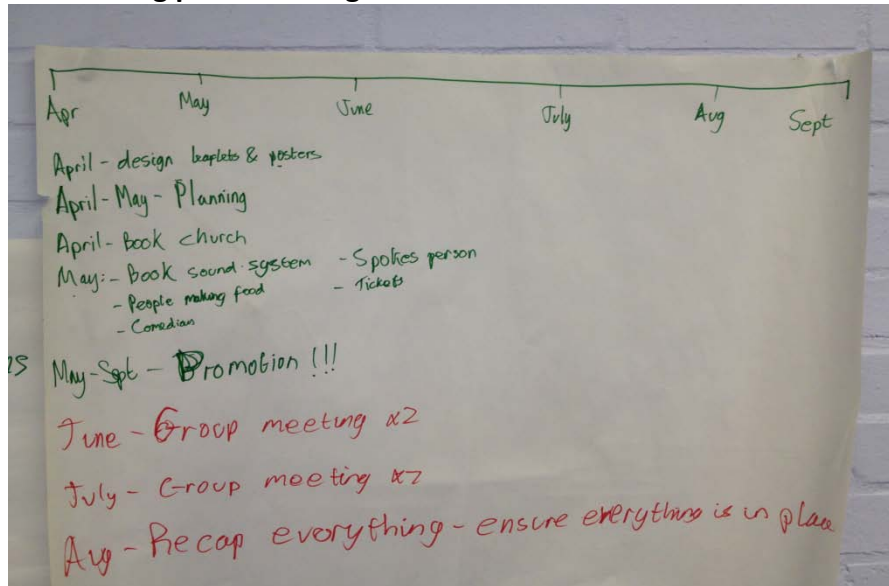 Apr May June July Aug Sept
April - design leaplets & posters
April - May - Planning
April - Book church
May: - Book sound system - Spokes person
- People making food - Tickets
- Comedian
May - Sept - Promotion !!!
June - Group meeting x2
July - Group meeting x2
Aug - Recap everything - ensure everything is in place